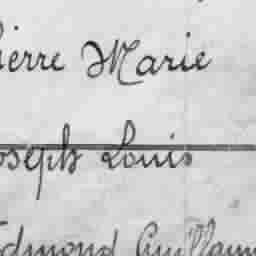 ierre Marie
oseph Louis
Edmond Guillaum